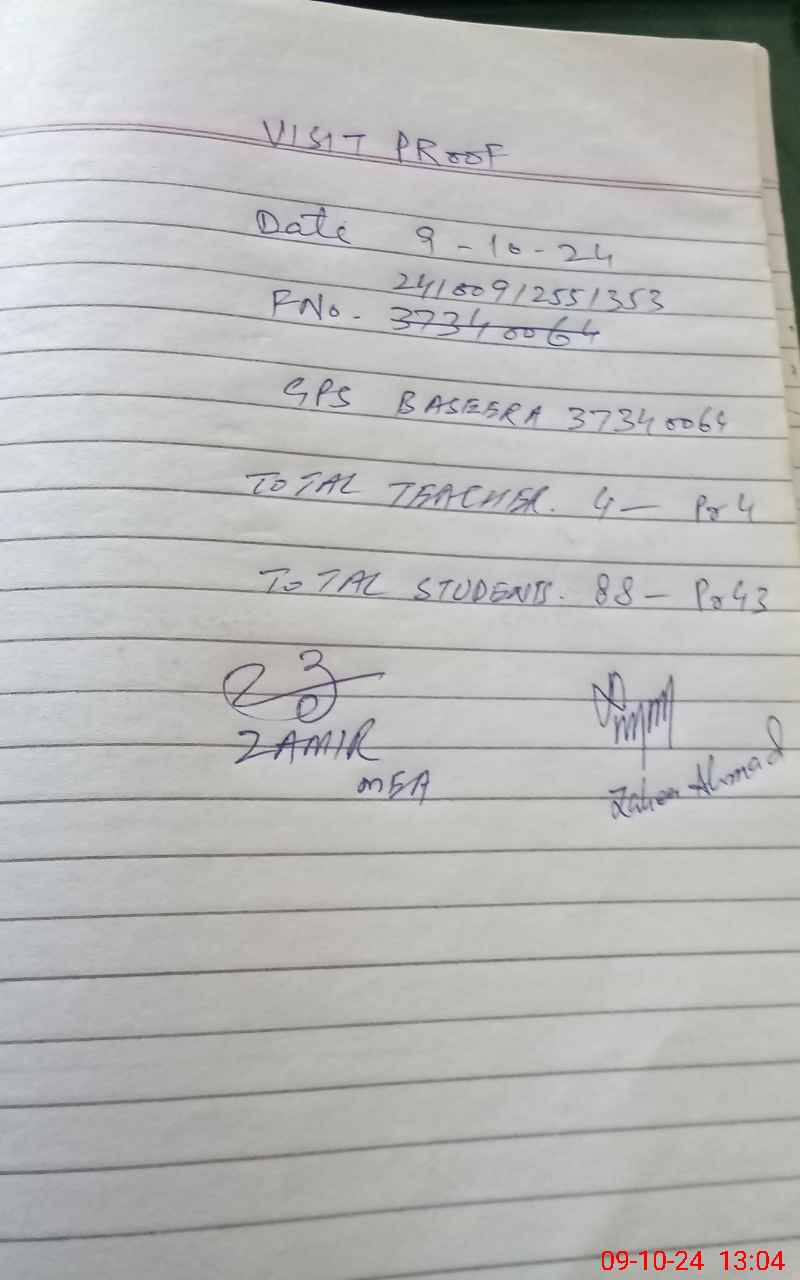 VISIT PROOF
Date 9-10-24
24100912551353
FNo. 37340064
GPS BASEERA 37340064
TOTAL TEACHER. 4 — Pr 4
TOTAL STUDENTS. 88 — Pr 43
ZAMIR
MEA
Ahmad
09-10-24 13:04